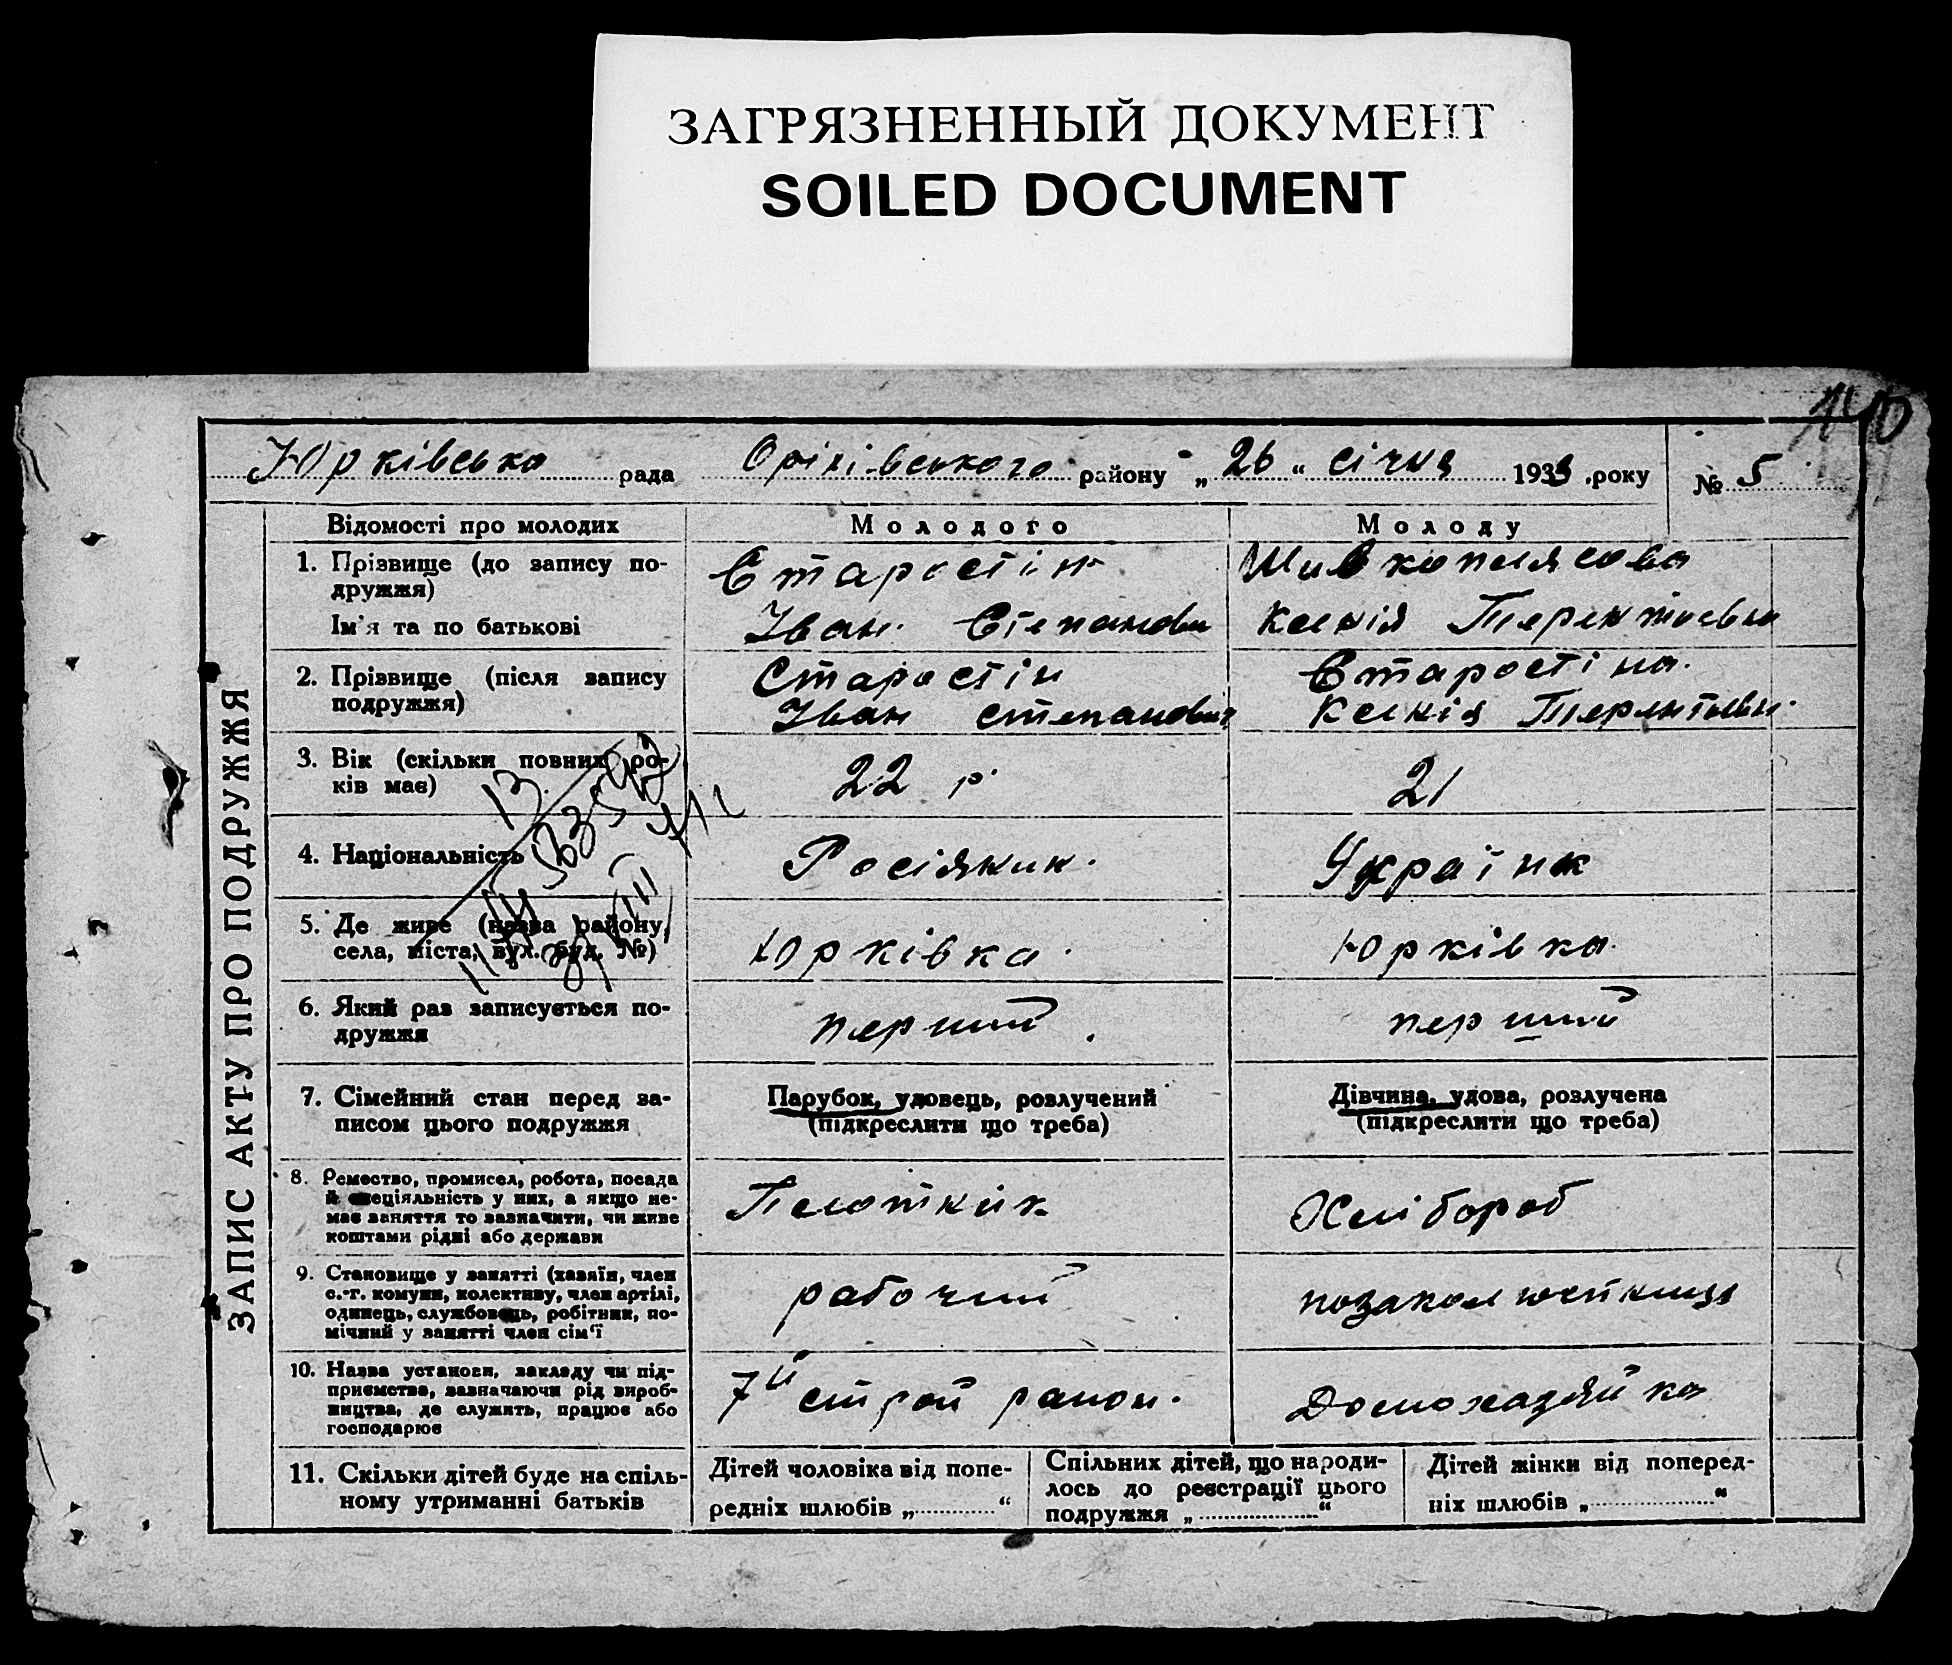 ЗАГРЯЗНЕННЫЙ ДОКУМЕНТ
SOILED DOCUMENT
Юрківська рада Орінівського району „ 26 “ січня 1933 року № 5
ЗАПИС АКТУ ПРО ПОДРУЖЖЯ
Відомості про молодих Молодого Молоду
1. Прізвище (до запису по-
дружжя)
Старостін Шивкоплясова
Ім'я та по батькові Іван Степанови Ксенія Терентьевна
2. Прізвище (після запису
подружжя)
Старостін Старостіна
Іван Степанович Ксенія Терентьевн.
3. Вік (скільки повних ро-
ків має)
22 р. 21
4. Національність Росіянин. Українк
5. Де живе (назва району,
села, міста, вул. буд. №)
Юрківка. Юрківка.
6. Який раз записується по-
дружжя
перший. перший
7. Сімейний стан перед за-
писом цього подружжя
Парубок, удовець, розлучений
(підкреслити що треба)
Дівчина, удова, розлучена
(підкреслити що треба)
8. Ремество, промисел, робота, посада
й спеціяльність у них, а якщо не-
має заняття то зазначити, чи живе
коштами рідні або держави
Плотник Хлібороб
9. Становище у занятті (хазяїн, член
с.-г. комуни, колективу, член артілі,
одинець, службовець, робітник, по-
мічний у занятті член сім'ї
рабочий
10. Назва установи, закладу чи під-
приємства, зазначаючи рід вироб-
ництва, де служить, працює або
господарює
7й строй район. Домохазяйка
11. Скільки дітей буде на спіль-
ному утриманні батьків
Дітей чоловіка від попе-
редніх шлюбів „ “
Спільних дітей, що народи-
лось до реєстрації цього
подружжя „ “
Дітей жінки від поперед-
ніх шлюбів „ “